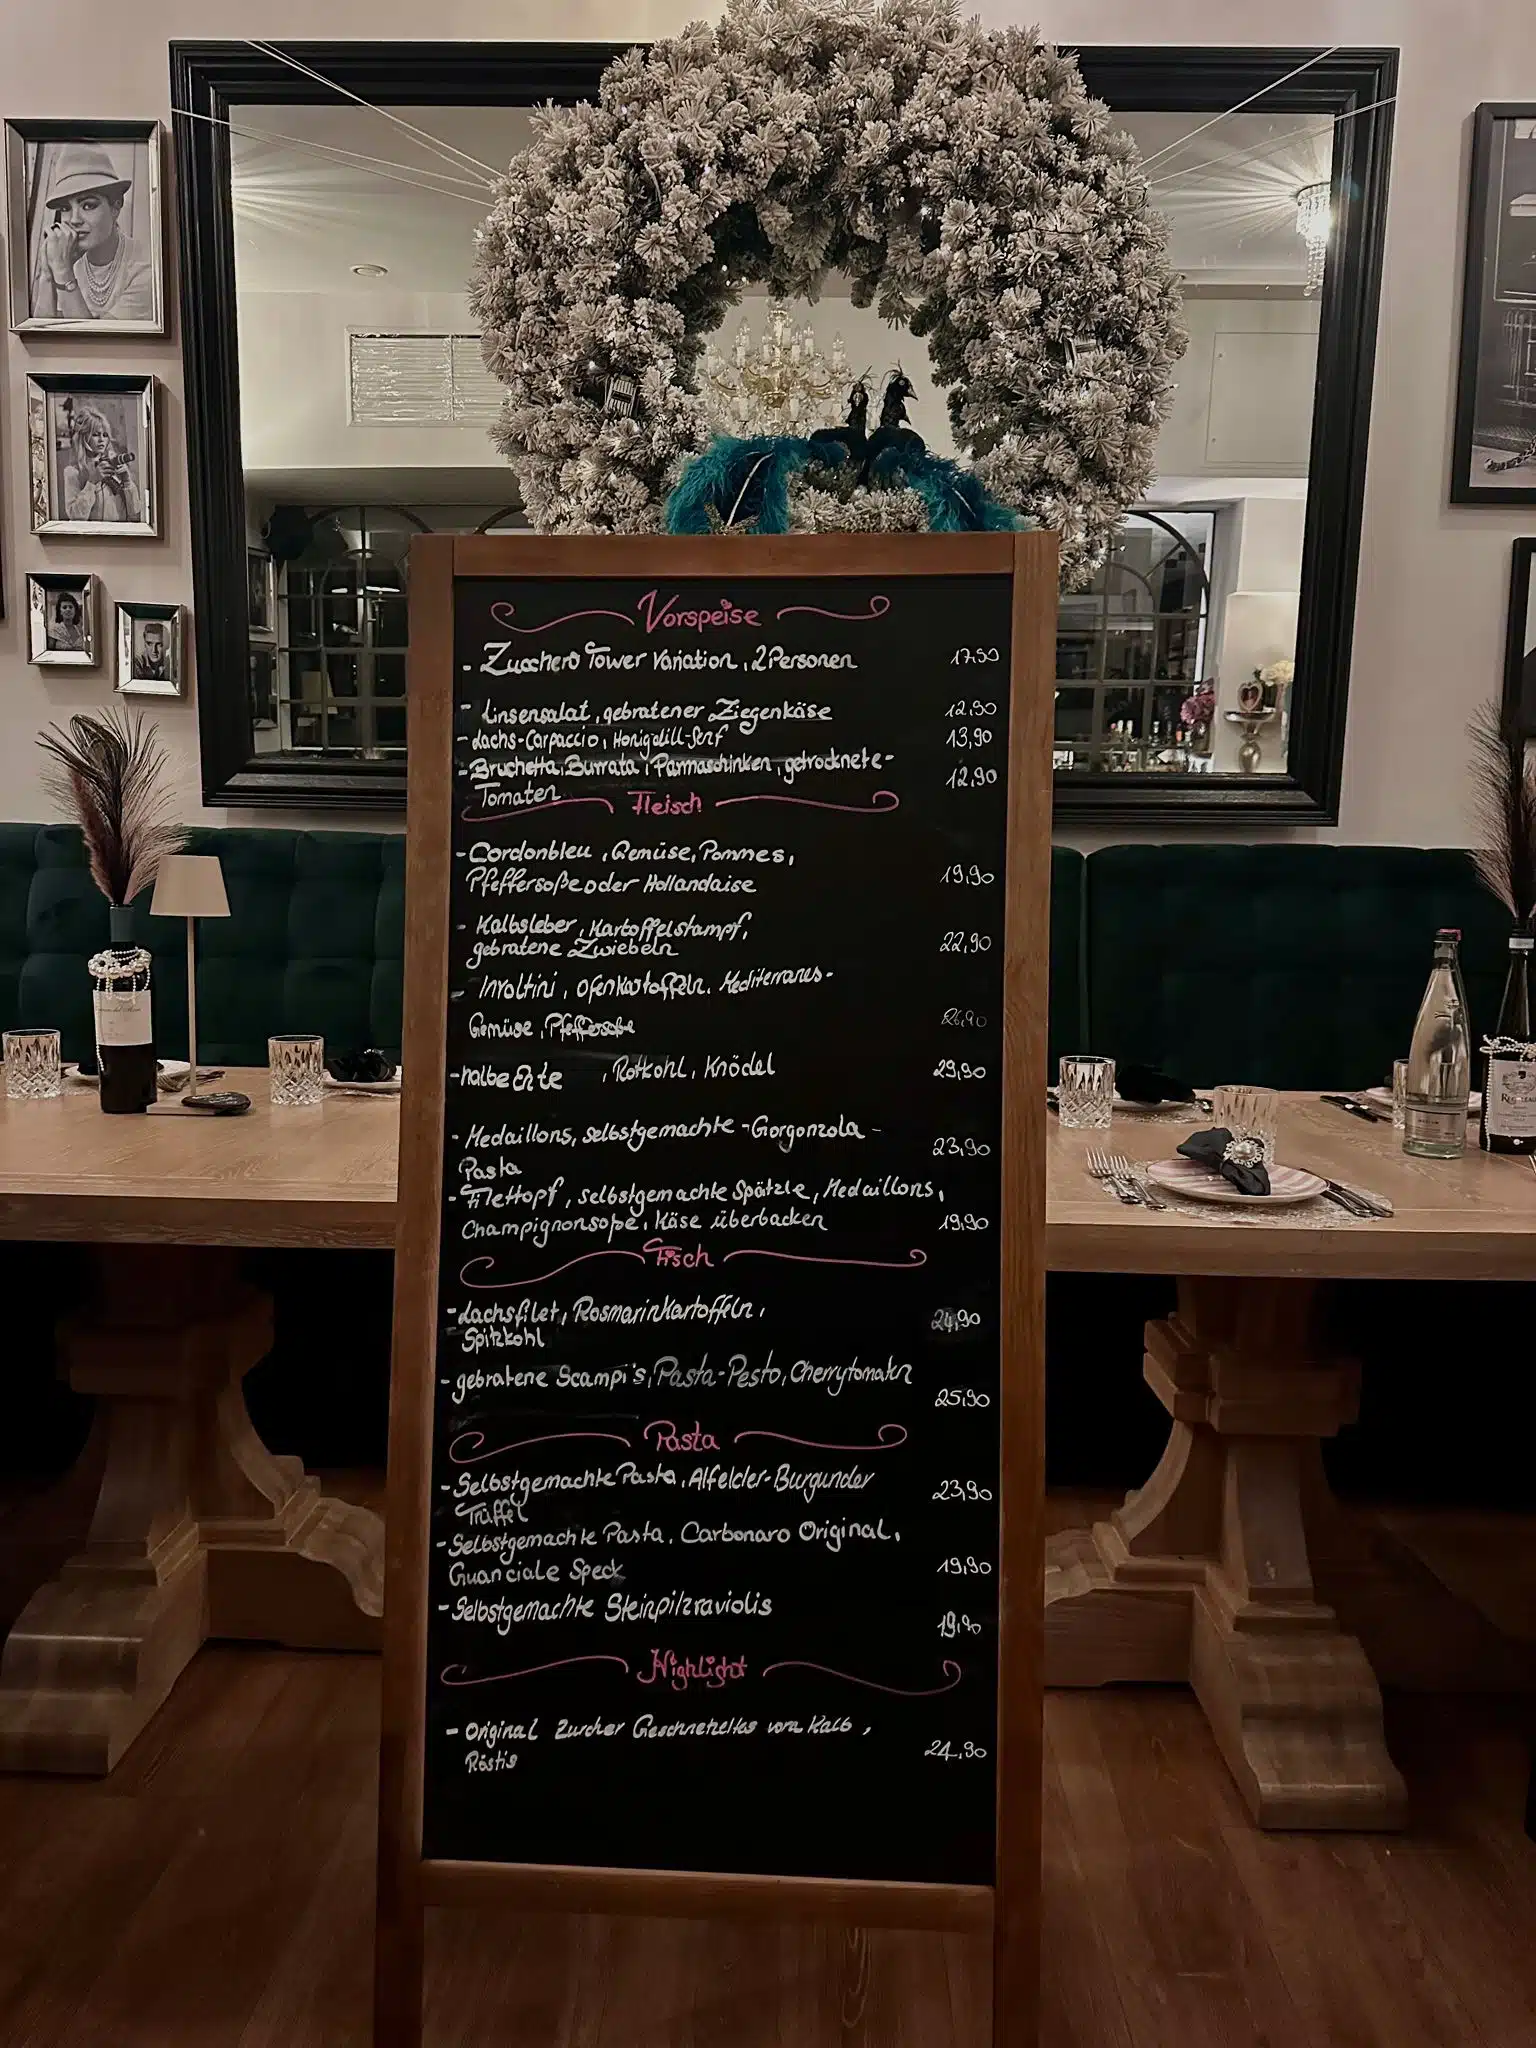 Vorspeise
- Zucchero Tower Variation, 2 Personen 17,50
- Linsensalat, gebratener Ziegenkäse 12,90
- Lachs-Carpaccio, Honigdill-Senf 13,90
- Bruchetta, Burrata, Parmaschinken, getrocknete-
Tomaten 12,90
Fleisch
- Cordonbleu, Gemüse, Pommes,
Pfeffersoße oder Hollandaise 19,90
- Kalbsleber, Kartoffelstampf,
gebratene Zwiebeln 22,90
- Involtini, Ofenkartoffeln, Mediterranes-
Gemüse, Pfeffersoße 26,90
- halbe Ente, Rotkohl, Knödel 29,90
- Medaillons, selbstgemachte-Gorgonzola-
Pasta 23,90
- Filettopf, selbstgemachte Spätzle, Medaillons,
Champignonsoße, Käse überbacken 19,90
Fisch
- Lachsfilet, Rosmarinkartoffeln,
Spitzkohl 24,90
- gebratene Scampi's, Pasta-Pesto, Cherrytomaten
25,90
Pasta
- Selbstgemachte Pasta, Alfelder-Burgunder
Trüffel 23,90
- Selbstgemachte Pasta, Carbonara Original,
Guanciale Speck 19,90
- Selbstgemachte Steinpilzraviolis 19,90
Highlight
- Original Zürcher Geschnetzeltes vom Kalb,
Röstis 24,90